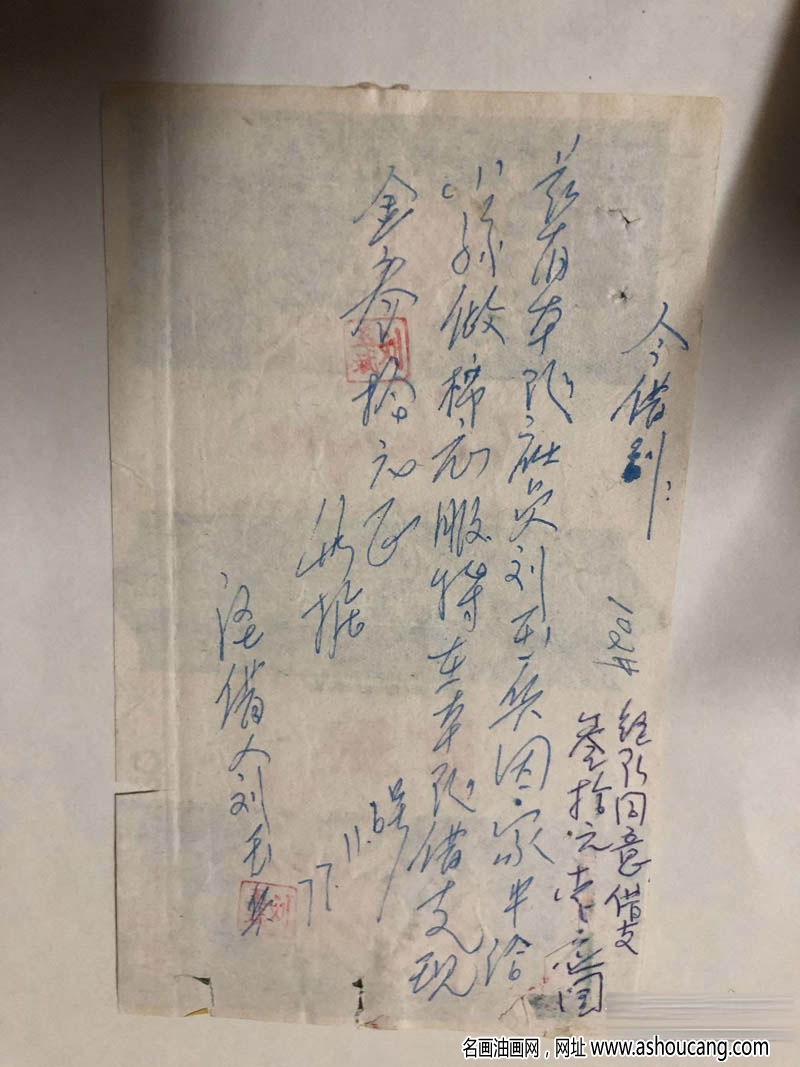 今借到:
兹有本队社员刘玉英因家中给
小孩做棉衣服特在本队借支现
金 叁拾元正
此据
经借人刘玉英
77.11.6号
经队同意借支
叁拾元
名画油画网，网址 www.ashoucang.com